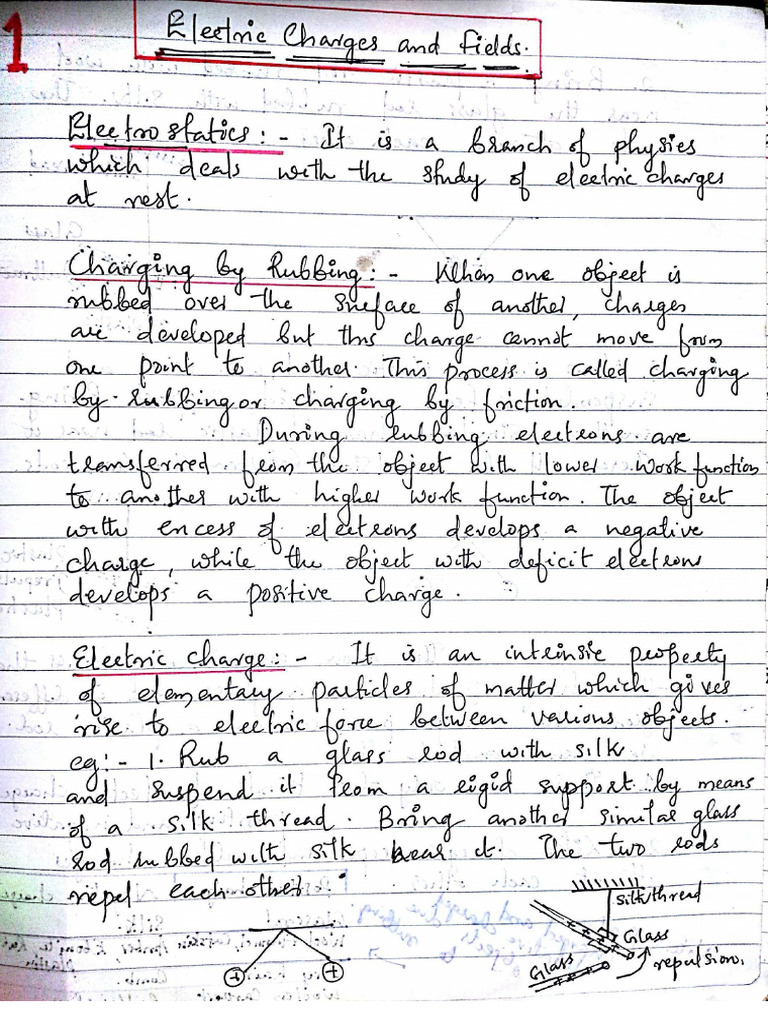 1
Electric Charges and Fields.
Electrostatics: - It is a branch of physics
which deals with the study of electric charges
at rest.
Charging by Rubbing: - When one object is
rubbed over the surface of another, charges
are developed but this charge cannot move from
one point to another. This process is called charging
by rubbing or charging by friction.
During rubbing electrons are
transferred from the object with lower work function
to another with higher work function. The object
with excess of electrons develops a negative
charge, while the object with deficit electrons
develops a positive charge.
Electric charge: - It is an intrinsic property
of elementary particles of matter which gives
rise to electric force between various objects.
eg:- 1. Rub a glass rod with silk
and suspend it from a rigid support by means
of a silk thread. Bring another similar glass
rod rubbed with silk near it. The two rods
repel each other.
silk thread
Glass
Glass
repulsion.
+ +